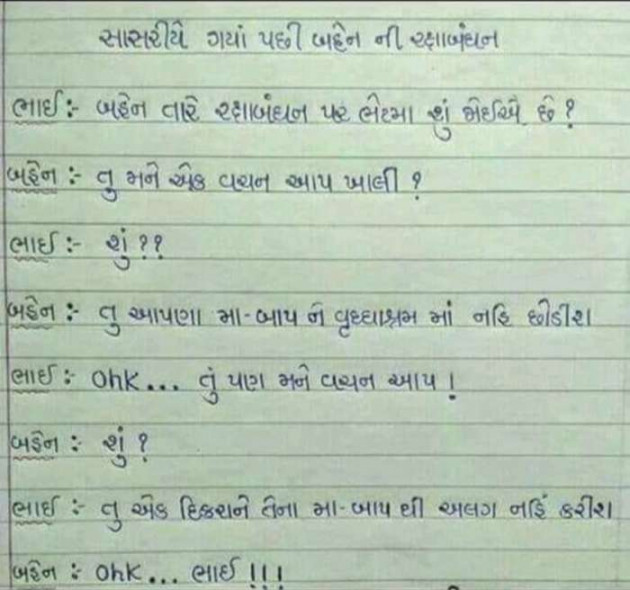 સાસરીયે ગયાં પછી બહેન ની રક્ષાબંધન
ભાઈ:- બહેન તારે રક્ષાબંધન પર ભેટમા શું જોઈએ છે ?
બહેન :- તુ મને એક વચન આપ ખાલી ?
ભાઈ :- શું ??
બહેન :- તુ આપણા મા-બાપ ને વૃધ્ધાશ્રમ માં નહિ છોડીશ
ભાઈ :- Ohk... તું પણ મને વચન આપ !
બહેન :- શું ?
ભાઈ :- તુ એક દિકરાને તેના મા-બાપ થી અલગ નહિં કરીશ
બહેન :- Ohk... ભાઈ !!!